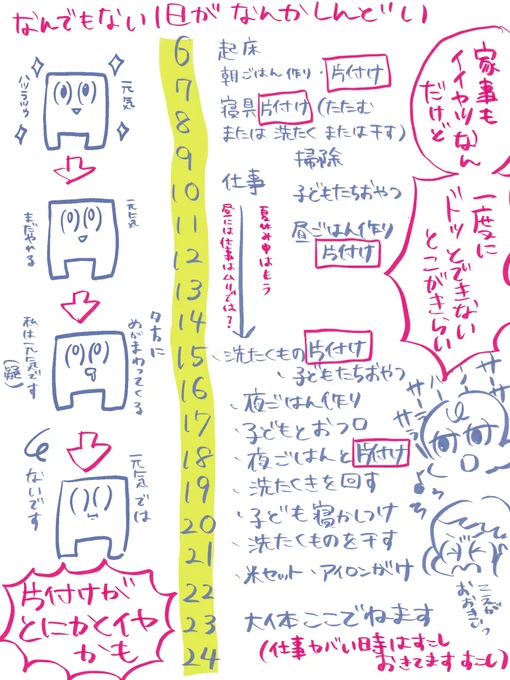 なんでもない1日がなんかしんどい
元気
ハツラツゥ
元気
まだやれる
夕方に
めがまわってくる
私は元気です
(疑)
元気では
ないです
片付けが
とにかくイヤ
かも
6
7
8
9
10
11
12
13
14
15
16
17
18
19
20
21
22
23
24
起床
朝ごはん作り・片付け
寝具片付け(たたむ
または洗たくまたは干す)
掃除
仕事
子どもたちおやつ
昼ごはん作り
片付け
夏休み中はもう
昼には仕事はムリでは?
、洗たくもの片付け
、子どもたちおやつ
、夜ごはん作り
、子どもとおフロ
、夜ごはんと片付け
、洗たくきを回す
、子ども寝かしつけ
、洗たくものを干す
、米セット、アイロンがけ
大体ここでねます
(仕事ヤバい時はすこし
おきてますすこし)
家事も
イイヤツなん
だけど
一度に
ドッとできない
とこがきらい
サラサラ
こえが
おおきいっ